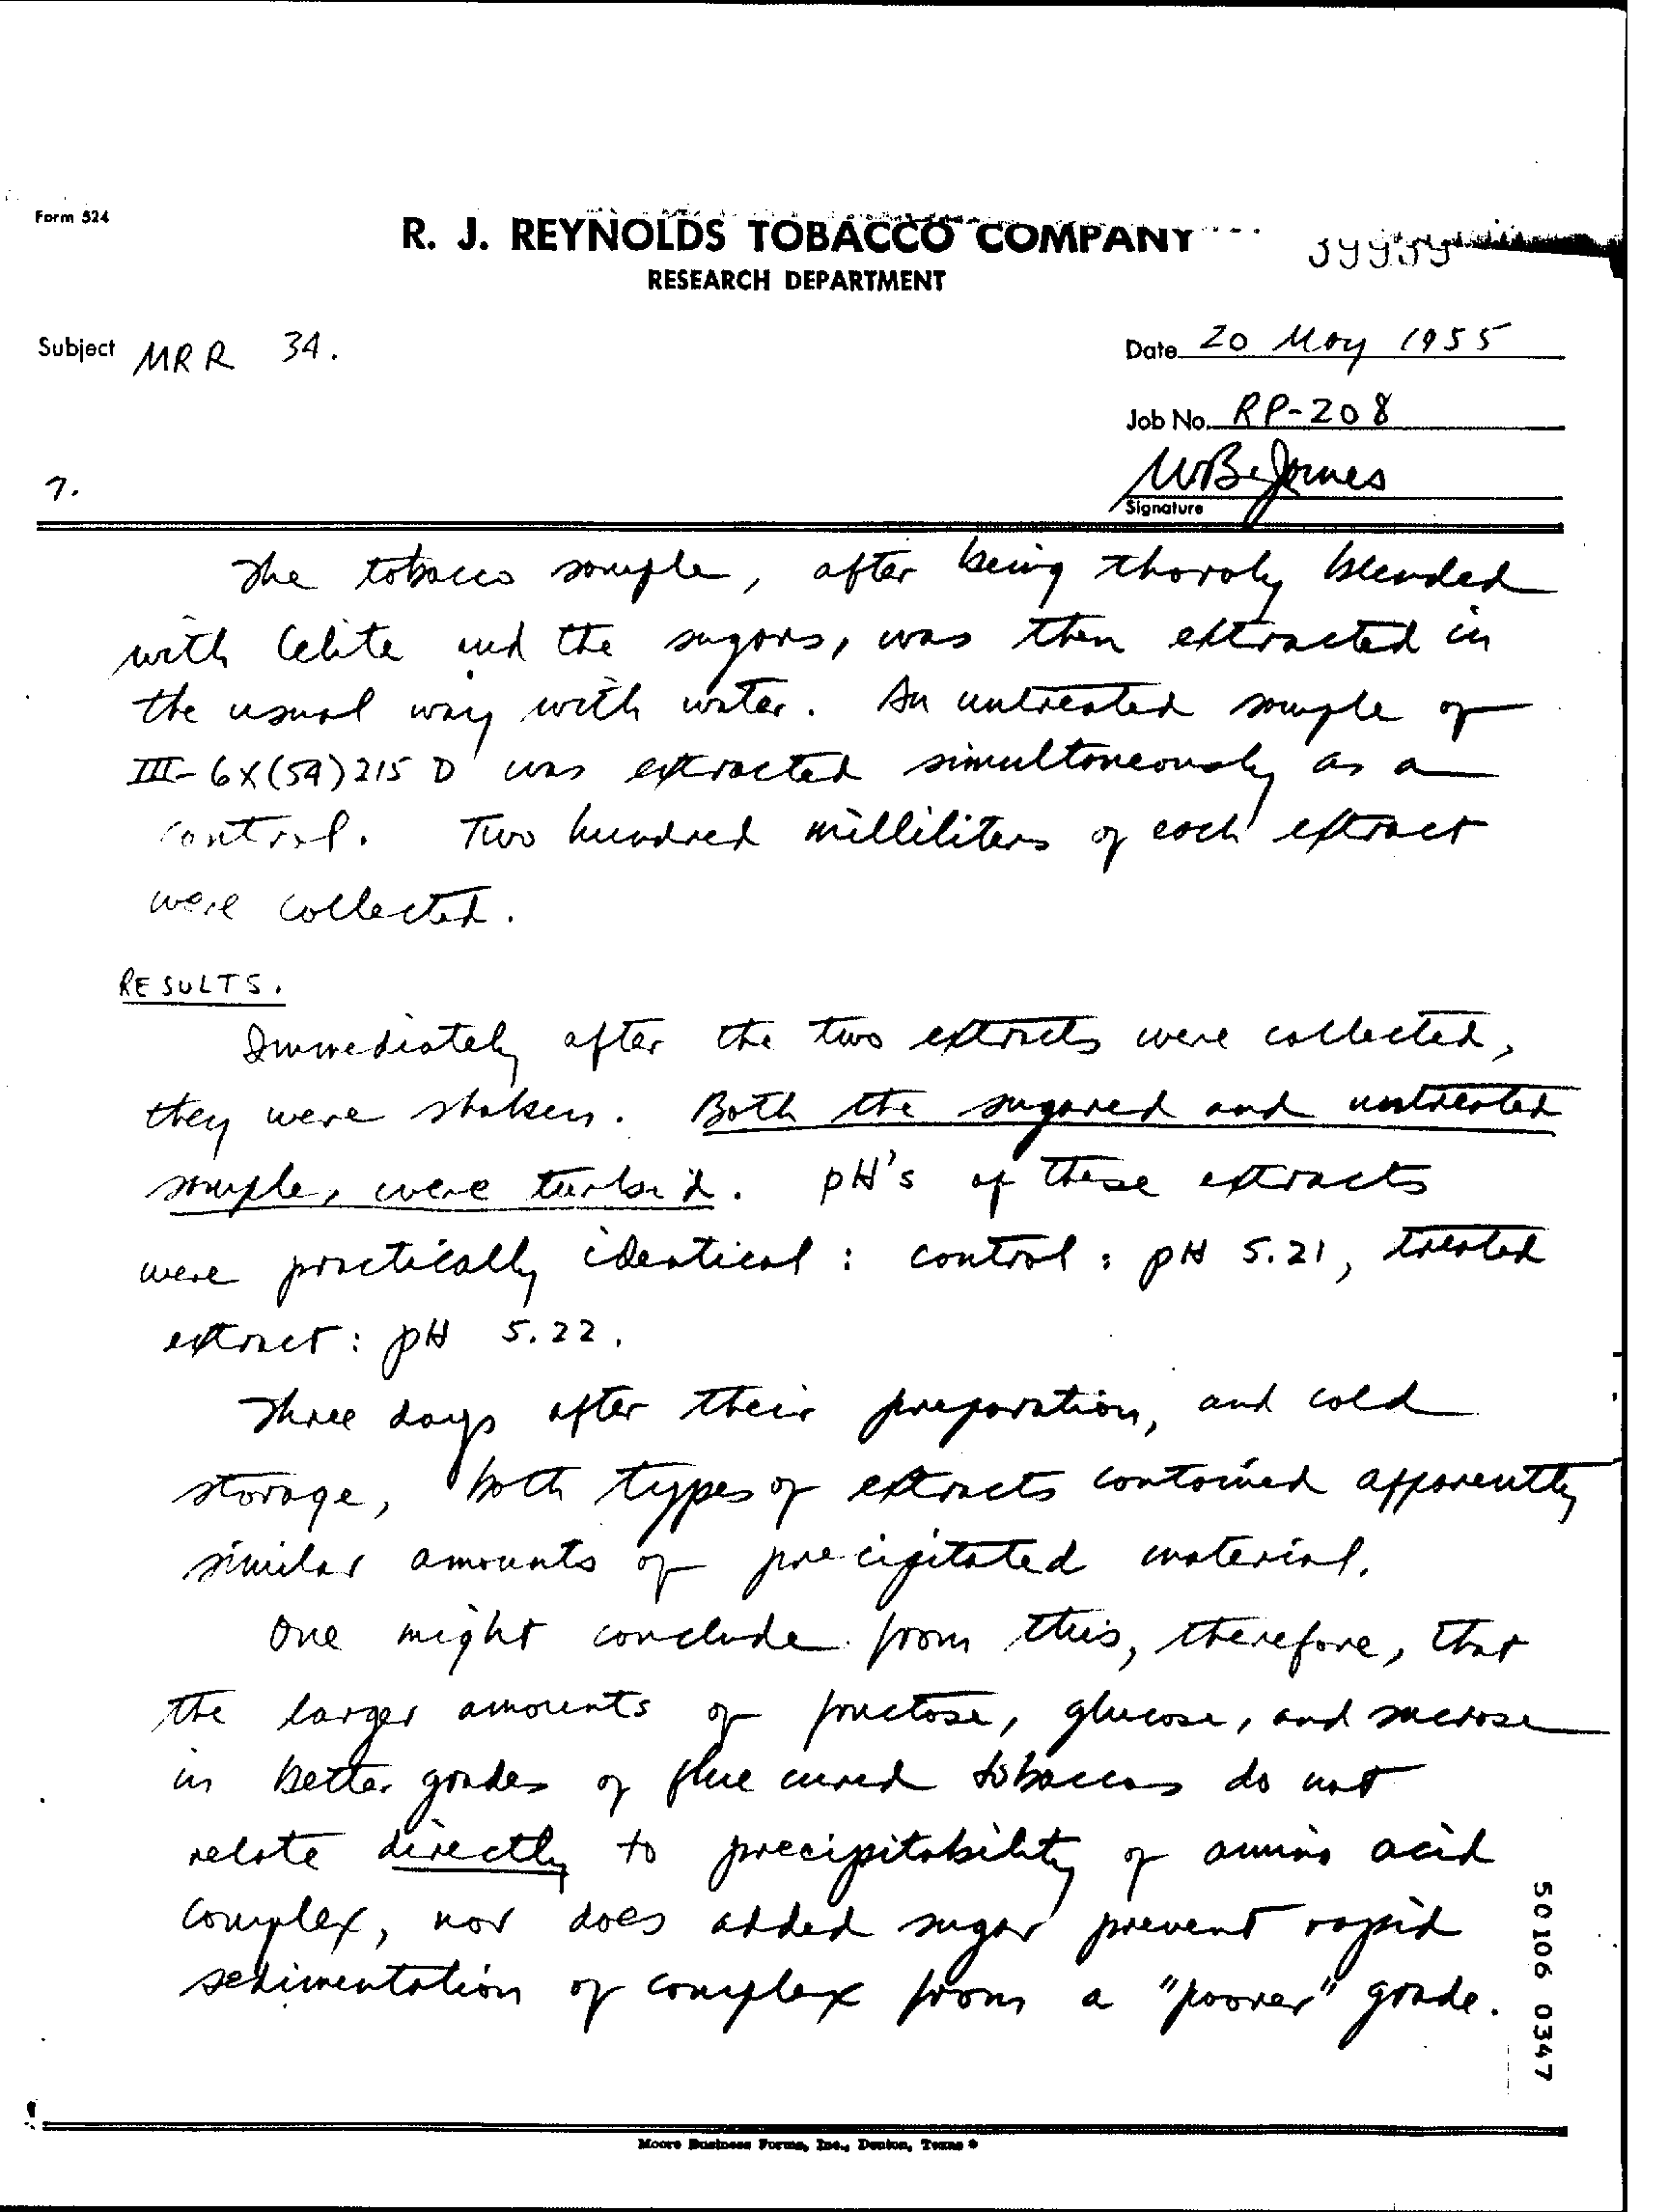 Form 524
R. J. REYNOLDS TOBACCO COMPANY
RESEARCH DEPARTMENT
Subject MRR 34.
Date 20 May 1955
Job No. RP-208
Signature
7.
The tobacco sample, after being thoroly blended
with Celite and the sugars, was then extracted in
the usual way with water. An untreated sample of
III-6X(54)215 D was extracted simultaneously as a
control. Two hundred milliliters of each extract
were collected.
RESULTS.
Immediately after the two extracts were collected,
they were shaken. Both the sugared and untreated
samples were turbid. pH's of these extracts
were practically identical: control: pH 5.21, treated
extract: pH 5.22.
Three days after their preparation, and cold
storage, both types of extracts contained apparently
similar amounts of precipitated material.
One might conclude from this, therefore, that
the larger amounts of fructose, glucose, and sucrose
in better grades of flue cured tobaccos do not
relate directly to precipitability of amino acid
complex, nor does added sugar prevent rapid
sedimentation of complex from a "poorer" grade.
50106 0347
Moore Business Forms, Inc., Denton, Texas